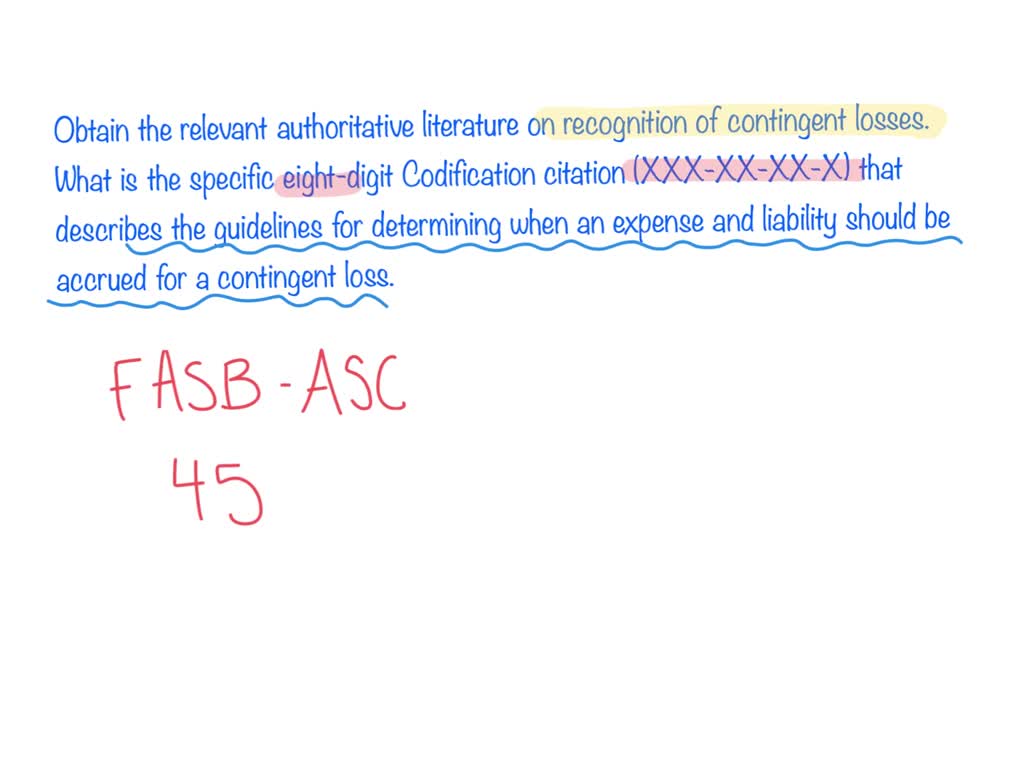 Obtain the relevant authoritative literature on recognition of contingent losses.
What is the specific eight-digit Codification citation (XXX-XX-XX-X) that
describes the guidelines for determining when an expense and liability should be
accrued for a contingent loss.
FASB - ASC
45